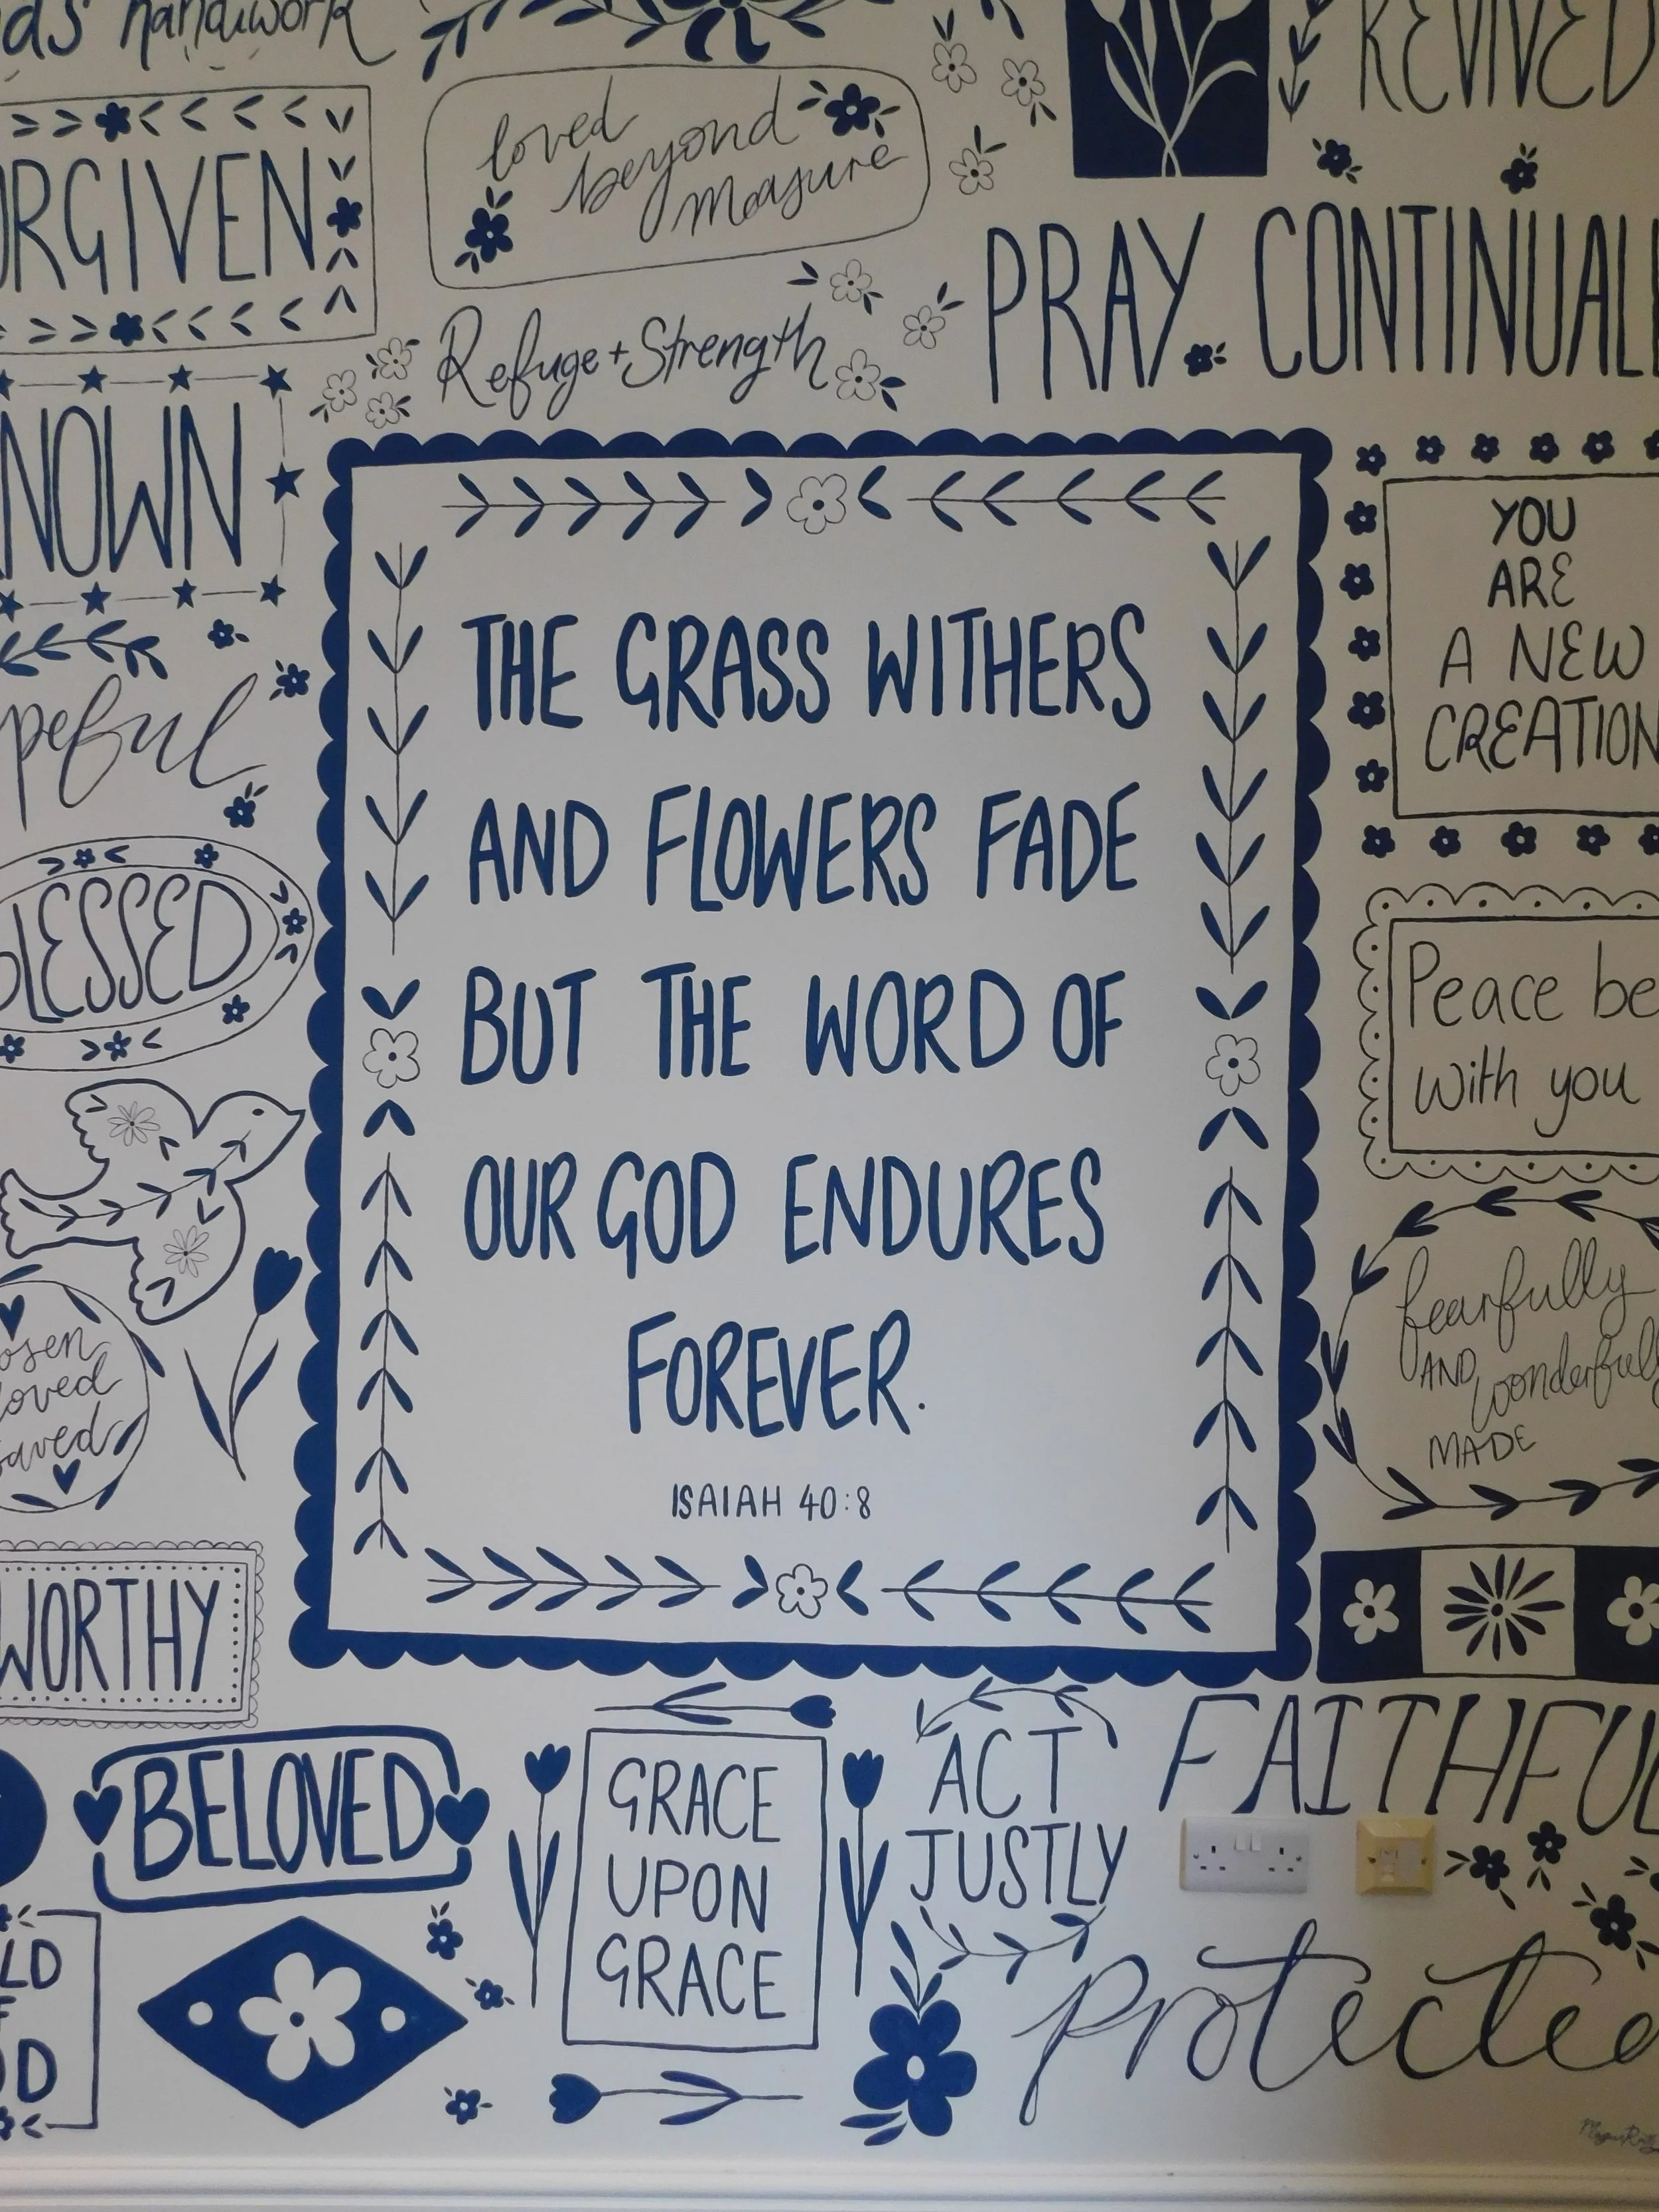 handiwork
REVIVED
loved
beyond
measure
ORGIVEN
Refuge + Strength
PRAY CONTINUALL
NOWN
YOU
ARE
A NEW
CREATION
THE GRASS WITHERS
AND FLOWERS FADE
BUT THE WORD OF
OUR GOD ENDURES
FOREVER.
ISAIAH 40:8
peful
LESSED
Peace be
with you
fearfully
AND wonderfully
MADE
osen
loved
saved
WORTHY
BELOVED
GRACE
UPON
GRACE
ACT
JUSTLY
FAITHFUL
protected
LD
F
OD